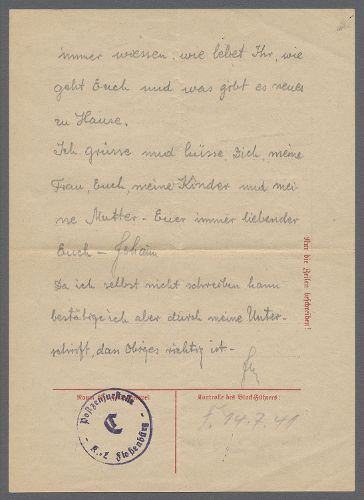 immer wiessen. wie lebet Ihr, wie
geht Euch und was gibt es neues
zu Hause.
Ich grüsse und küsse Dich, meine
Frau, Euch, meine Kinder und mei-
ne Mutter - Euer immer liebender
Euch - Johann
Da ich selbst nicht schreiben kann
bestätige ich aber durch meine Unter-
schrift, dan Obiges richtig ist -
Nur die Zeilen beschreiben!
Kontrolle des Blockführers:
14.7.41
Postzensurstelle
C
K.L. Floßenbürg